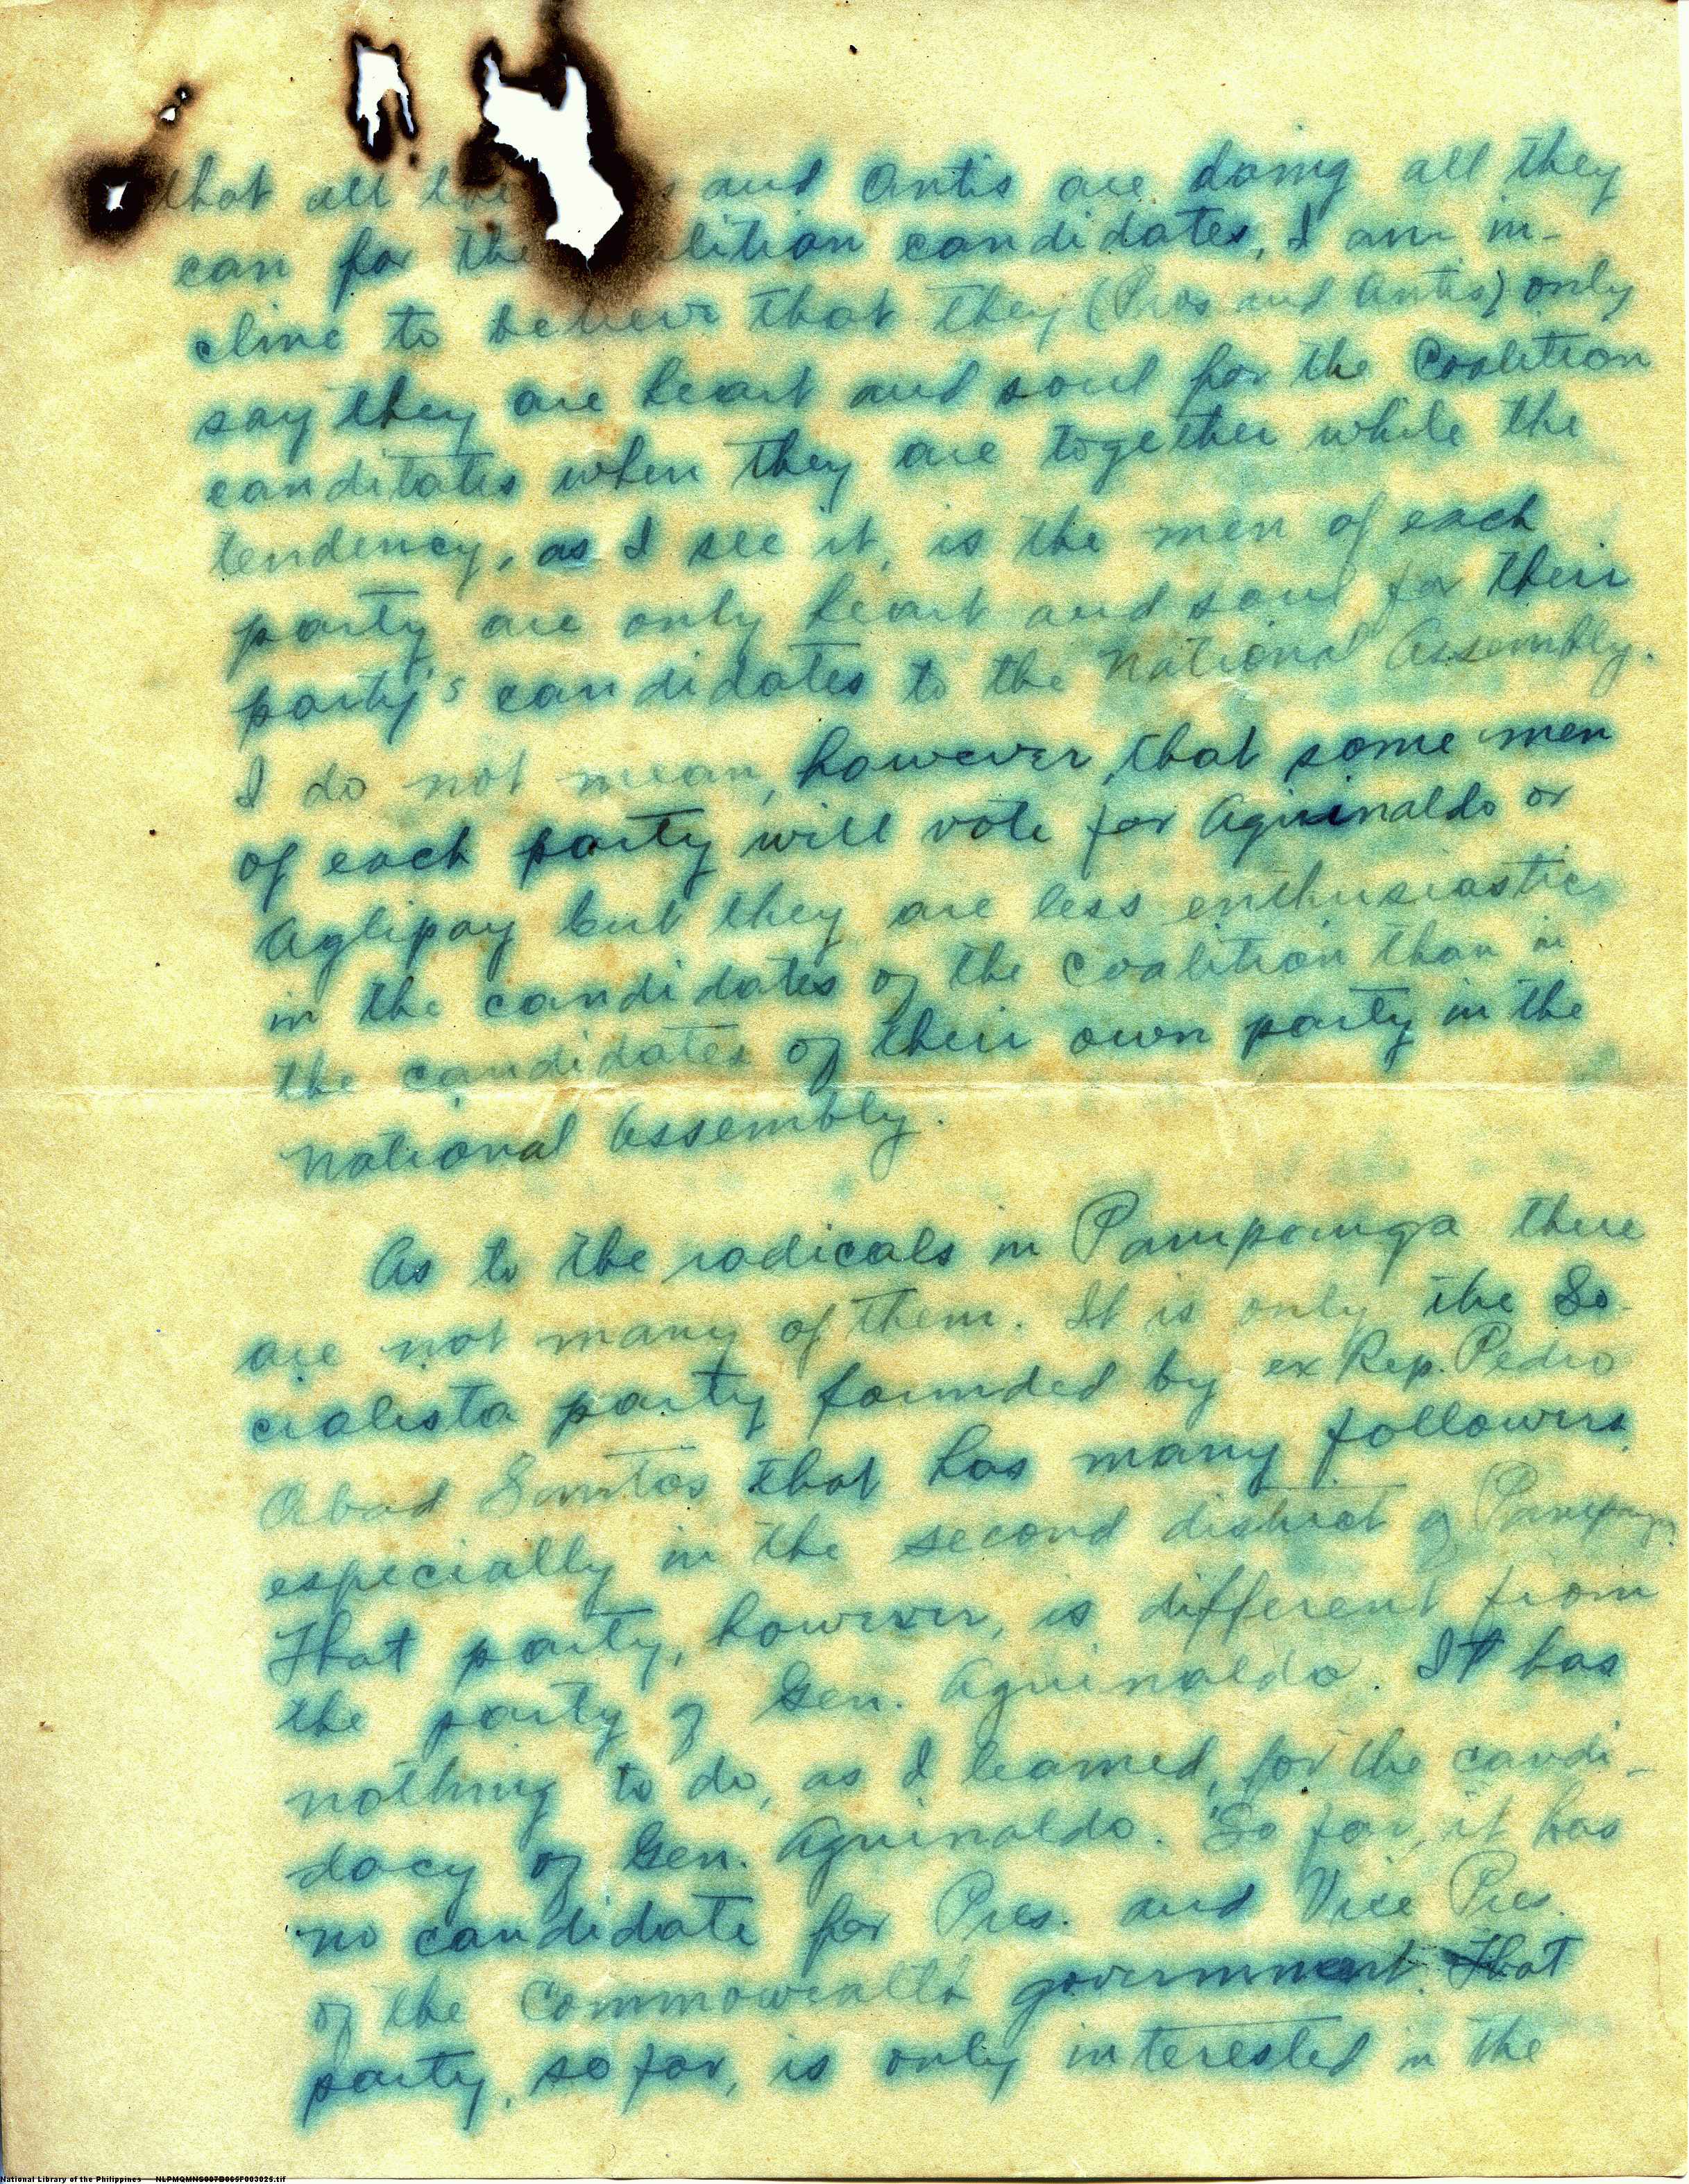 that all the s and Antis are doing all they
can for the lition candidates, I am in-
cline to believe that they (Pros and Antis) only
say they are heart and soul for the Coalition
canditates when they are together while the
tendency, as I see it, is the men of each
party are only heart and soul for their
party's candidates to the National Assembly.
I do not mean, however, that some men
of each party will vote for Aguinaldo or
Aglipay but they are less enthusiastic
in the candidates of the Coalition than in
the candidates of their own party in the
National Assembly.
As to the radicals in Pampanga there
are not many of them. It is only the So-
cialista party founded by ex Rep. Pedro
Abad Santos that has many followers
especially in the second district of Pampanga.
That party, however, is different from
the party of Gen. Aguinaldo. It has
nothing to do, as I learned, for the candi-
dacy of Gen. Aguinaldo. So far, it has
no candidate for Pres. and Vice Pres.
of the Commonwealth government. That
party, so far, is only interested in the
National Library of the Philippines NLPMQMNS007B065F003025.tif